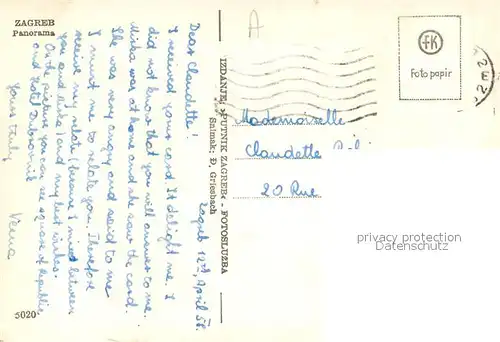 ZAGREB
Panorama
Zagreb 12th, April 58.
Dear Claudette!
I received your card. It delight me. I
did not know that you will answer to me.
Mirka was at home and she saw the card.
She was very angry and said to me
I must me to relate you. Therefore
receive my relate (because I mixed between
you and Mirka) and my best wishes.
On the picture you can see square of Republic
and Hotel Dubrovnik
Yours truly
Verica
5020
IZDANJE: »PUTNIK ZAGREB« FOTOSLUZBA
Snimak: Đ. Griesbach
A
fK
Foto papir
Mademoiselle
Claudette
20 Rue
privacy protection
Persönlichkeitsschutz